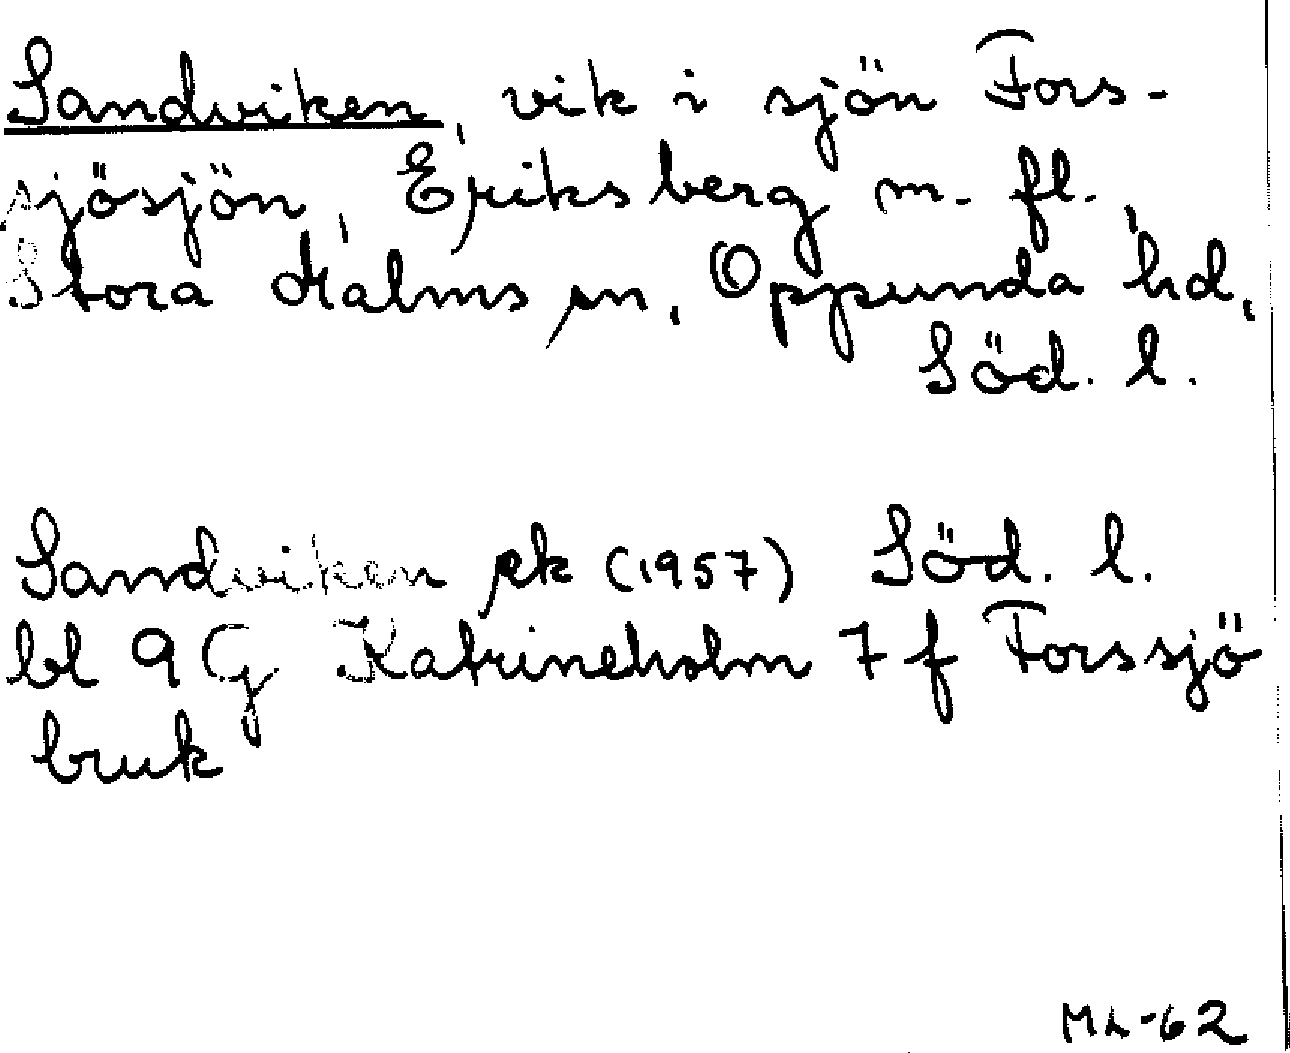 Sandviken, vik i sjön Fors-
sjösjön, Eriksberg m. fl.,
Stora Malms sn, Oppunda hd,
Söd. l.
Sandviken ek (1957) Söd. l.
bl 9G Katrineholm 7 f Forssjö
bruk
ML-62